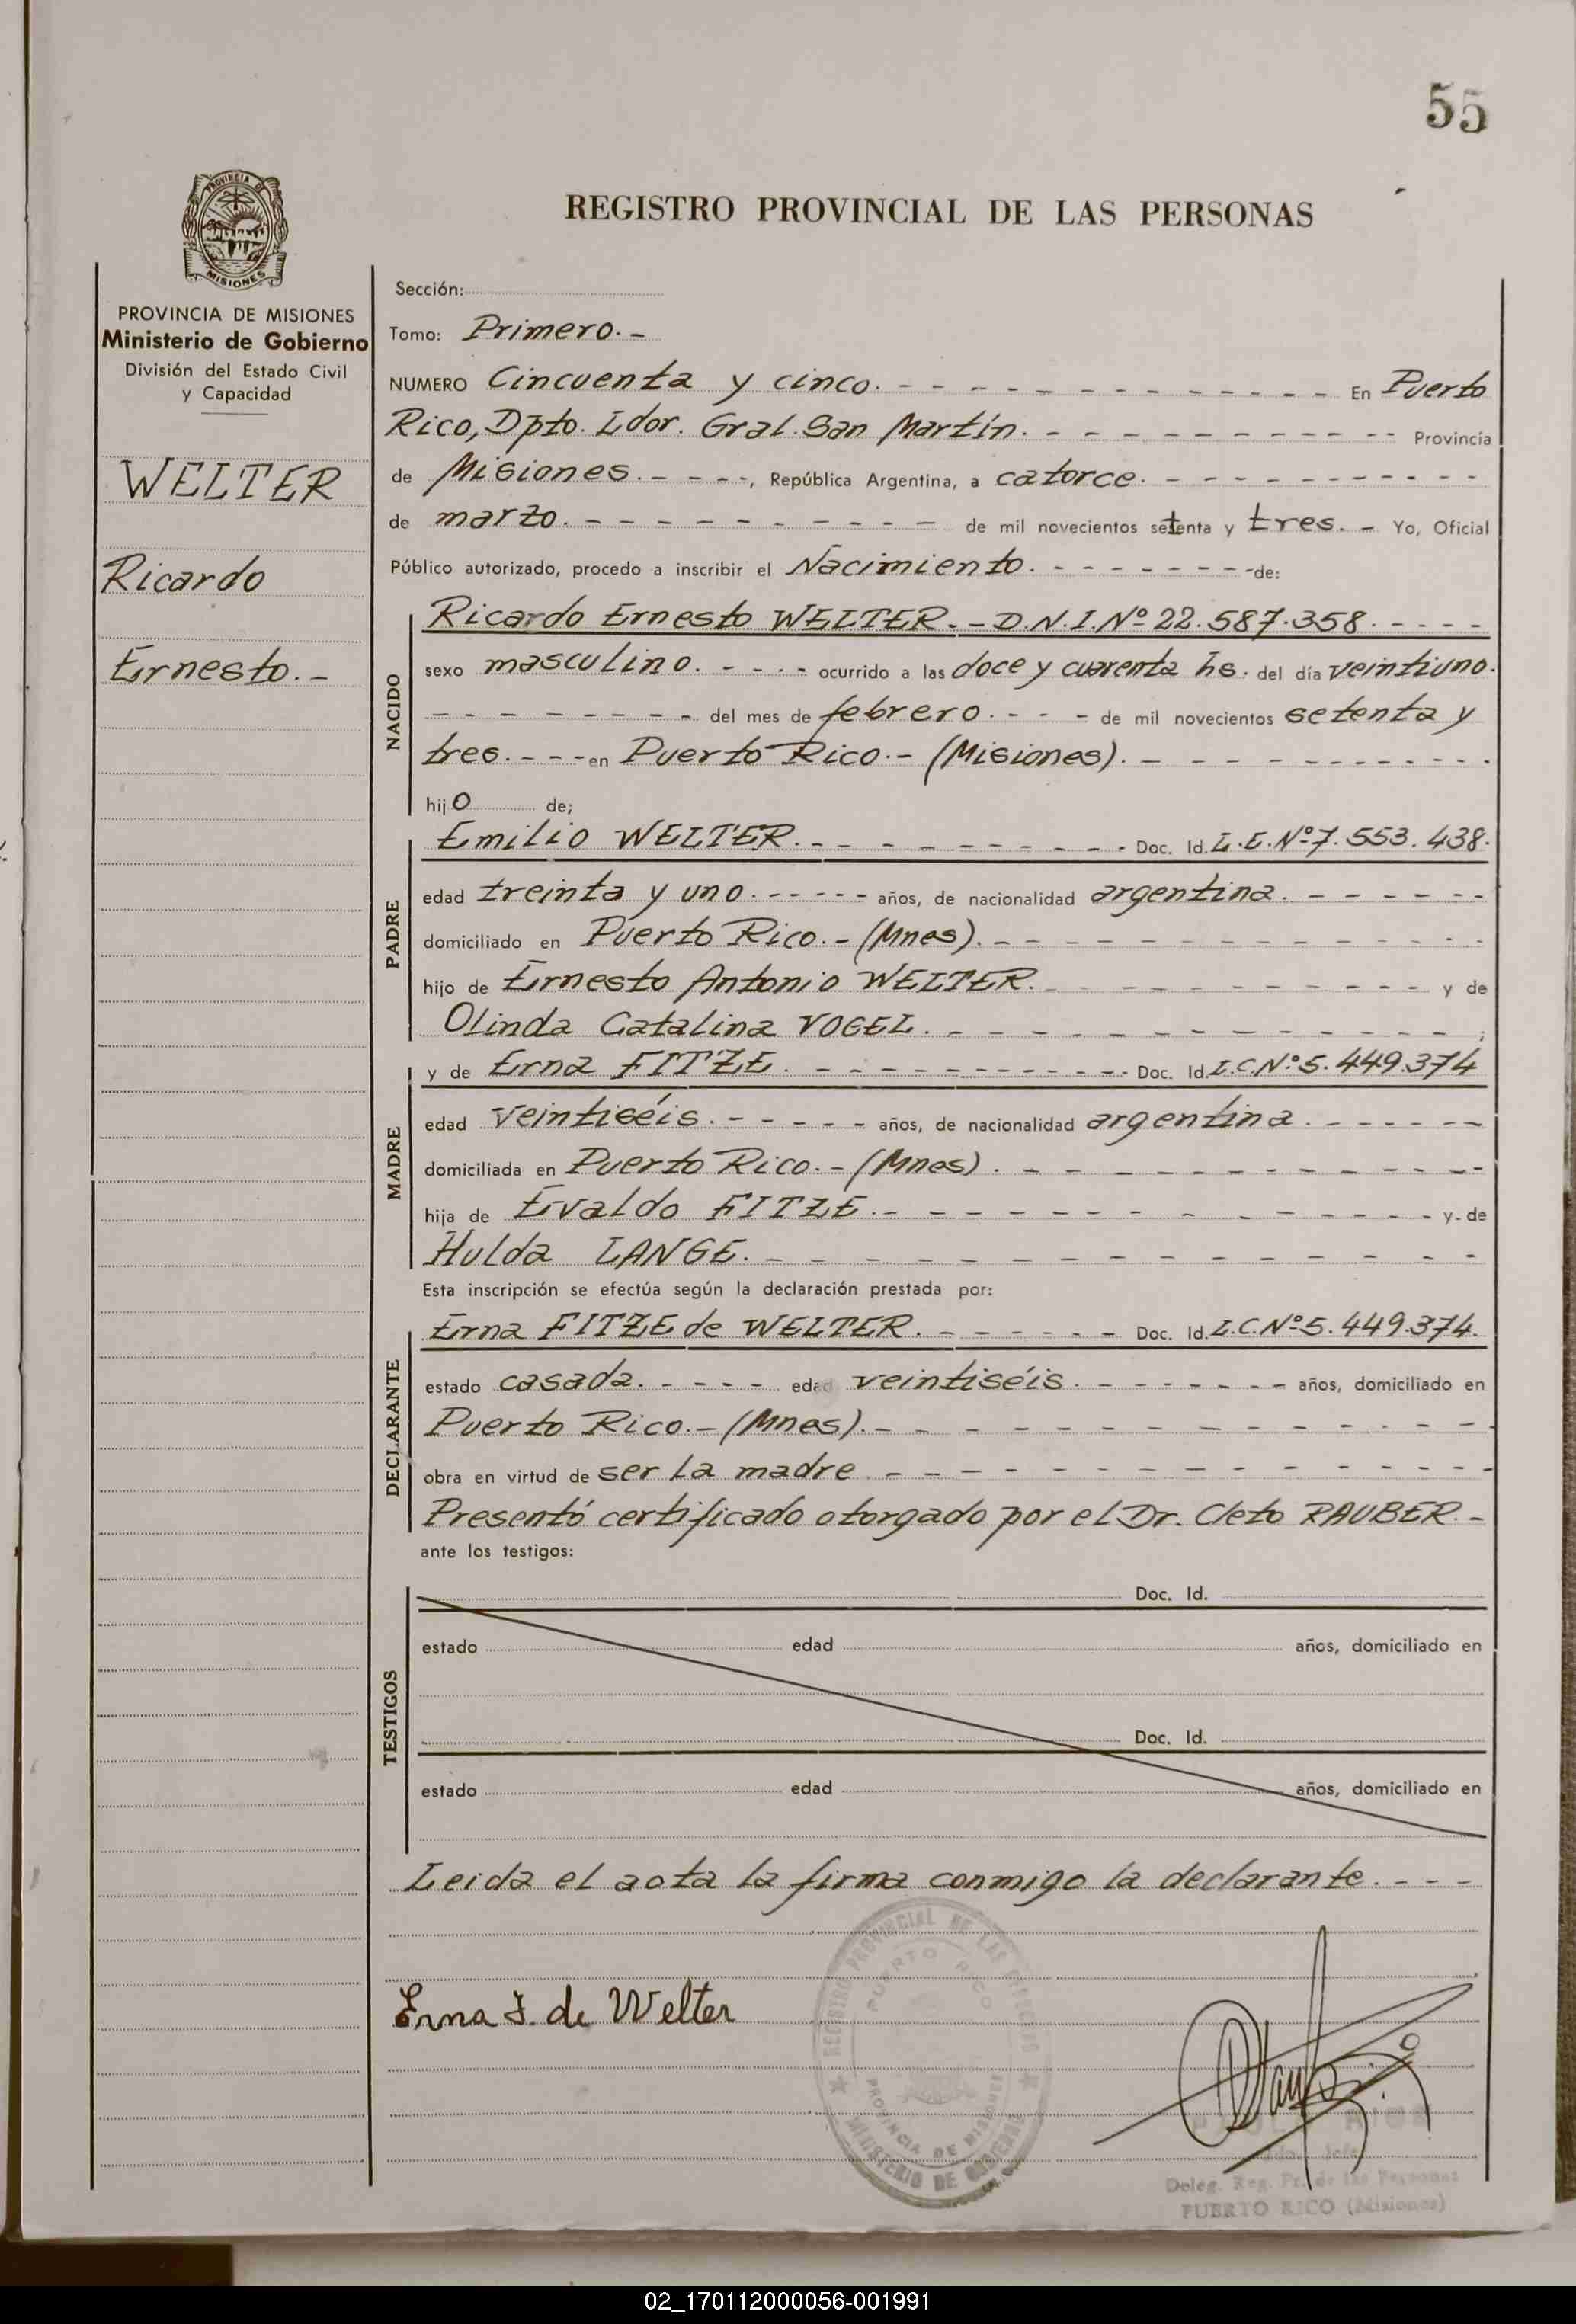 55
REGISTRO PROVINCIAL DE LAS PERSONAS
PROVINCIA DE
MISIONES
PROVINCIA DE MISIONES
Ministerio de Gobierno
División del Estado Civil
y Capacidad
WELTER
Ricardo
Ernesto.-
Sección:
Tomo: Primero.-
NUMERO Cincuenta y cinco. - - - - - - - - - - - - - En Puerto
Rico, Dpto. Ldor. Gral. San Martín. - - - - - - - - - - - - Provincia
de Misiones. - - - -, República Argentina, a catorce. - - - - - - - - - - -
de marzo. - - - - - - - - - - de mil novecientos setenta y tres. - Yo, Oficial
Público autorizado, procedo a inscribir el Nacimiento. - - - - - - - - de:
NACIDO
Ricardo Ernesto WELTER. - D.N.I. Nº 22.587.358. - - - -
sexo masculino. - - - - ocurrido a las doce y cuarenta hs. del día veintiuno.
- - - - - - - - del mes de febrero. - - - de mil novecientos setenta y
tres. - - - en Puerto Rico. - (Misiones). - - - - - - - - - - -
hijo de;
PADRE
Emilio WELTER. - - - - - - - - - - Doc. Id. L.E. Nº 7.553.438.
edad treinta y uno. - - - - - años, de nacionalidad argentina. - - - - - -
domiciliado en Puerto Rico. - (Mnes). - - - - - - - - - - - -
hijo de Ernesto Antonio WELTER. - - - - - - - - - - y de
Olinda Catalina VOGEL. - - - - - - - - - - - - ;
MADRE
y de Erna FITZE. - - - - - - - - - - - Doc. Id. L.C. Nº 5.449.374
edad veintiséis. - - - - - años, de nacionalidad argentina. - - - - - -
domiciliada en Puerto Rico. - (Mnes). - - - - - - - - - - - -
hija de Evaldo FITZE. - - - - - - - - - - - - y de
Hulda LANGE. - - - - - - - - - - - - - - -
Esta inscripción se efectúa según la declaración prestada por:
DECLARANTE
Erna FITZE de WELTER. - - - - - - Doc. Id. L.C. Nº 5.449.374.
estado casada. - - - - edad veintiséis. - - - - - - - años, domiciliado en
Puerto Rico. - (Mnes). - - - - - - - - - - - - - -
obra en virtud de ser la madre. - - - - - - - - - - - - -
Presentó certificado otorgado por el Dr. Cleto RAUBER. -
ante los testigos:
TESTIGOS
Doc. Id.
estado edad años, domiciliado en
Doc. Id.
estado edad años, domiciliado en
Leida el acta la firma conmigo la declarante. - - -
Erna F. de Welter
REGISTRO PROVINCIAL DE LAS PERSONAS
PUERTO RICO
PROVINCIA DE MISIONES
MINISTERIO DE GOBIERNO
Deleg. Reg. Pr. de las Personas
PUERTO RICO (Misiones)
02_170112000056-001991